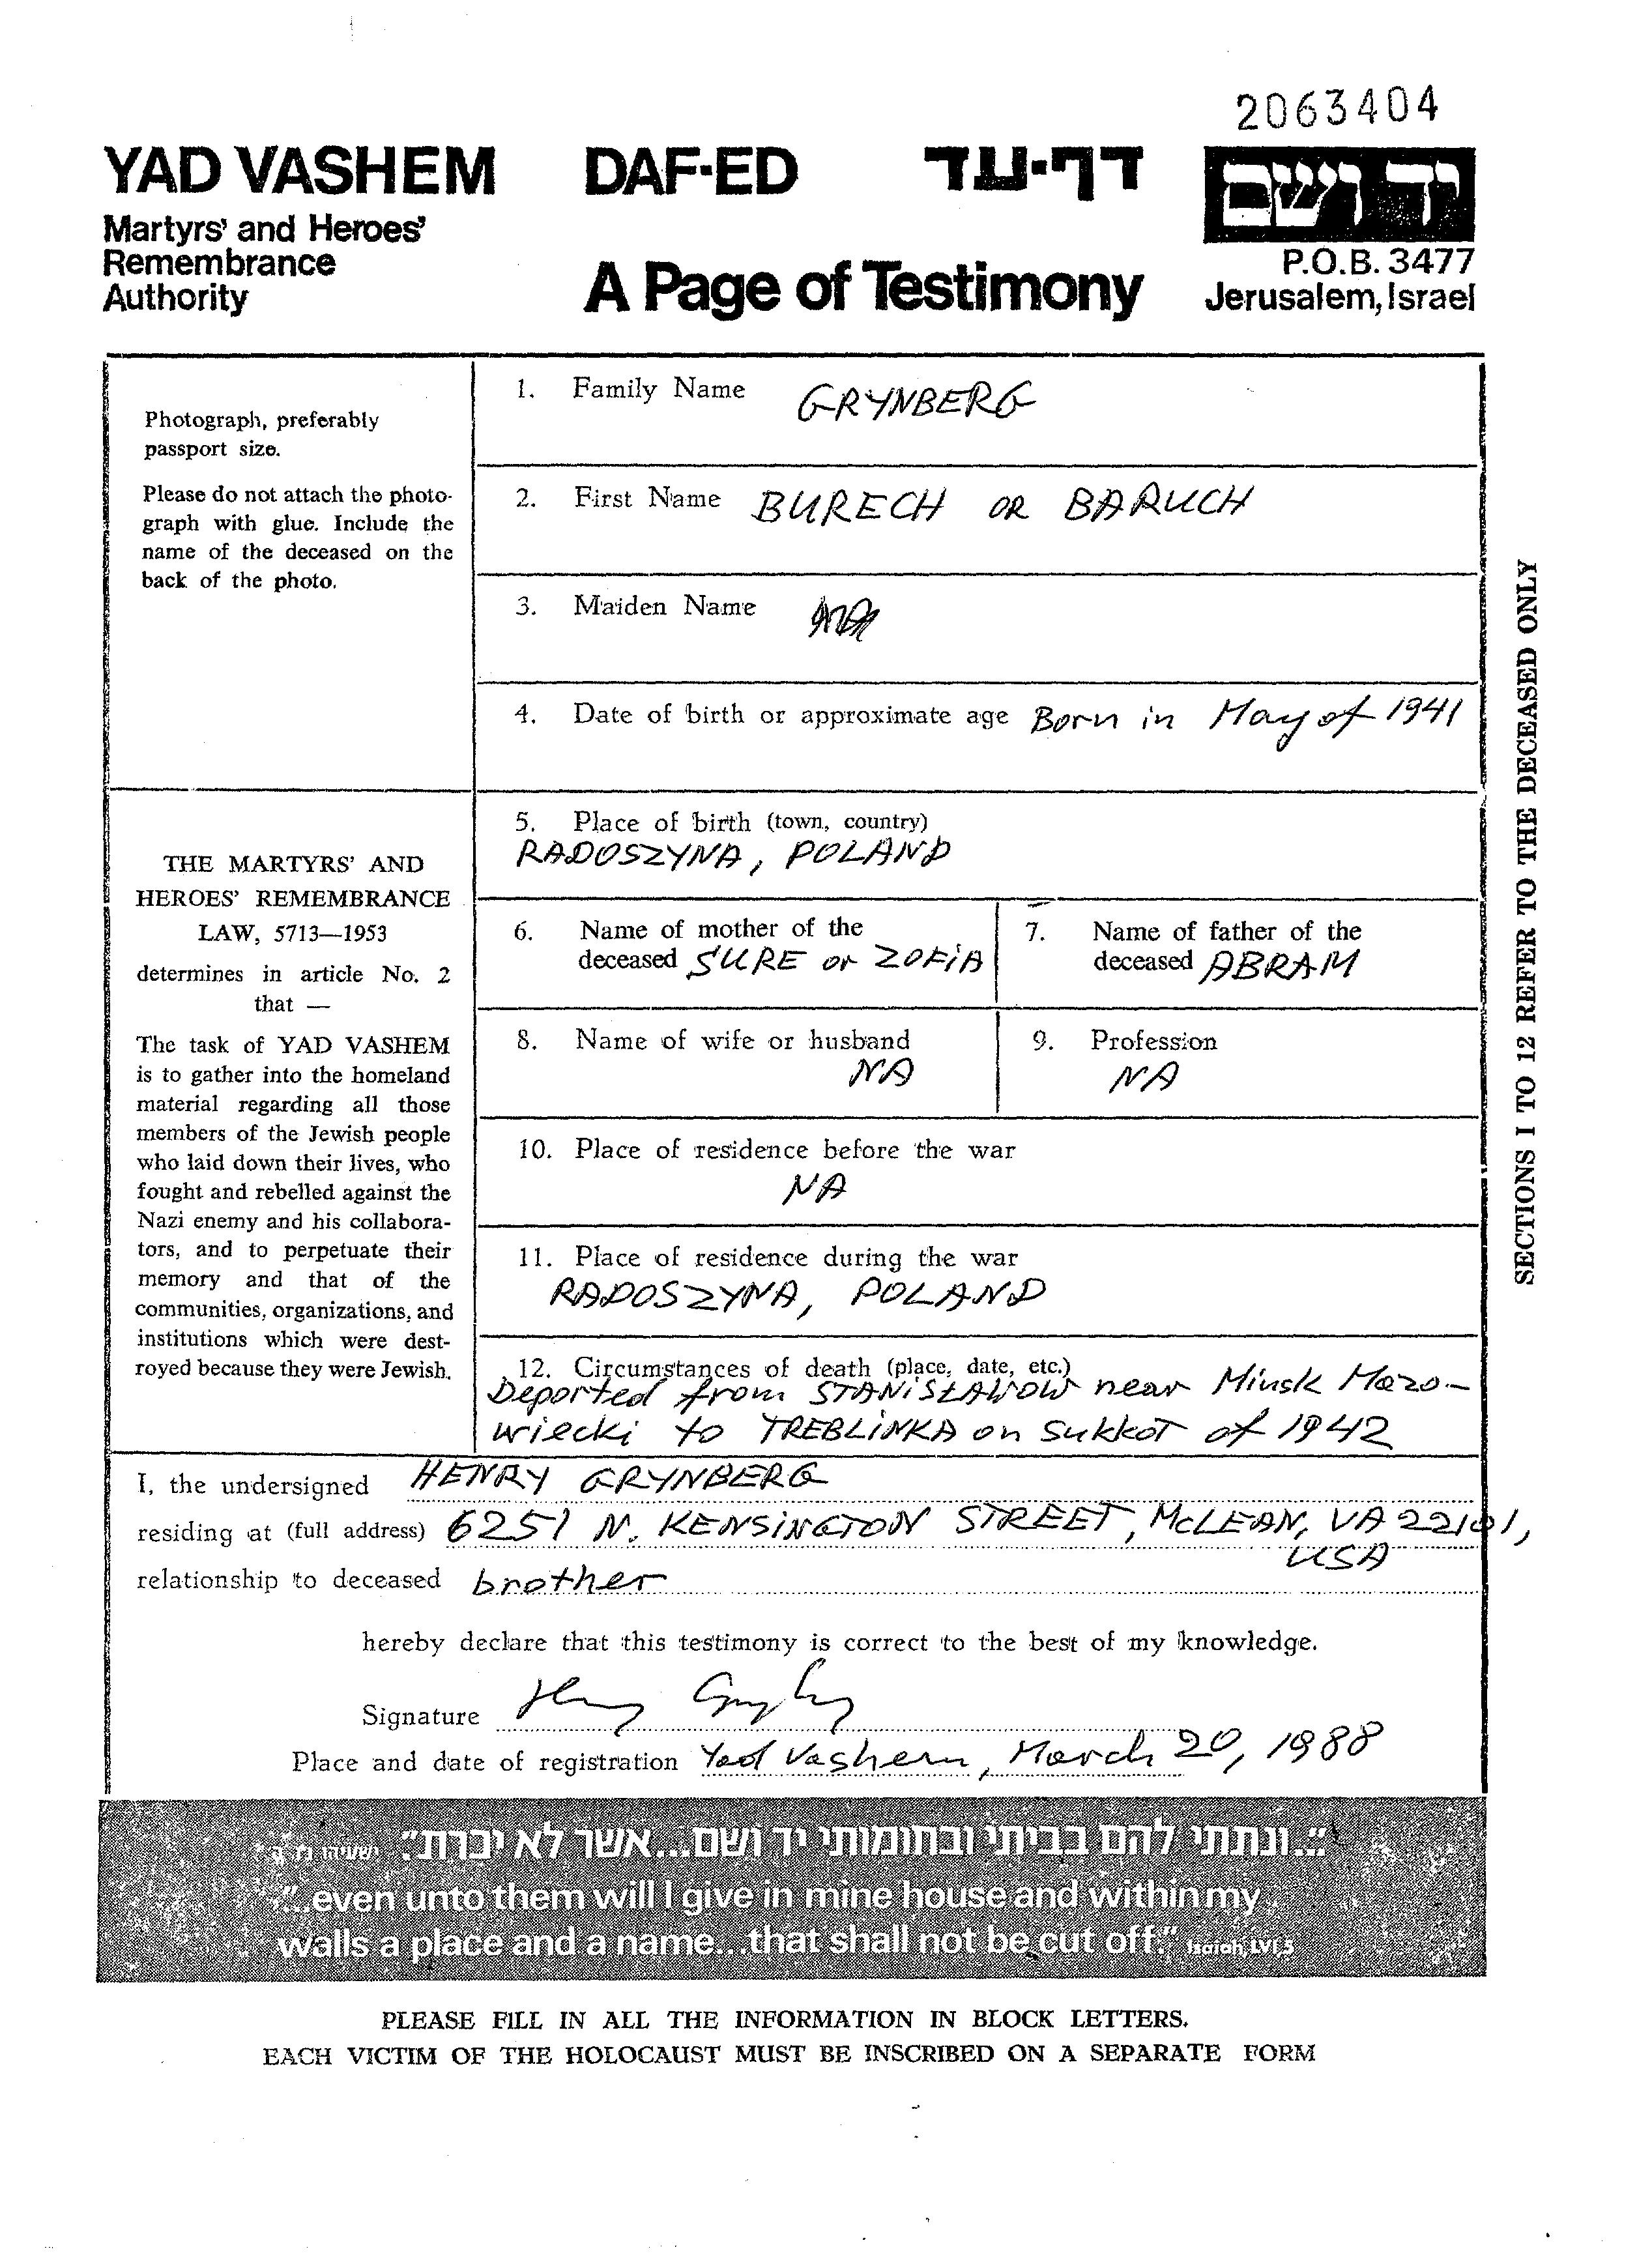 2063404
YAD VASHEM DAF-ED דף-עד יד ושם
Martyrs' and Heroes'
Remembrance
Authority
A Page of Testimony
P.O.B. 3477
Jerusalem, Israel
Photograph, preferably
passport size.
Please do not attach the photo-
graph with glue. Include the
name of the deceased on the
back of the photo.
THE MARTYRS' AND
HEROES' REMEMBRANCE
LAW, 5713—1953
determines in article No. 2
that —
The task of YAD VASHEM
is to gather into the homeland
material regarding all those
members of the Jewish people
who laid down their lives, who
fought and rebelled against the
Nazi enemy and his collabora-
tors, and to perpetuate their
memory and that of the
communities, organizations, and
institutions which were dest-
royed because they were Jewish.
1. Family Name GRYNBERG
2. First Name BURECH OR BARUCH
3. Maiden Name
4. Date of birth or approximate age Born in May of 1941
5. Place of birth (town, country)
RADOSZYNA, POLAND
6. Name of mother of the
deceased SURE or ZOFiA
7. Name of father of the
deceased ABRAM
8. Name of wife or husband
NA
9. Profession
NA
10. Place of residence before the war
NA
11. Place of residence during the war
RADOSZYNA, POLAND
12. Circumstances of death (place, date, etc.)
Deported from STANiSŁAWOW near Minsk Mazo-
wiecki to TREBLiNKA on Sukkot of 1942
SECTIONS 1 TO 12 REFER TO THE DECEASED ONLY
I, the undersigned HENRY GRYNBERG
residing at (full address) 6251 N. KENSiNGTON STREET, McLEAN, VA 22101,
USA
relationship to deceased brother
hereby declare that this testimony is correct to the best of my knowledge.
Signature Henry Grynberg
Place and date of registration Yad Vashem, March 20, 1988
"...ונתתי להם בביתי ובחומותי יד ושם...אשר לא יכרת." ישעיהו נו, ה
"...even unto them will I give in mine house and within my
walls a place and a name...that shall not be cut off." Isaiah, LVI, 5
PLEASE FILL IN ALL THE INFORMATION IN BLOCK LETTERS.
EACH VICTIM OF THE HOLOCAUST MUST BE INSCRIBED ON A SEPARATE FORM